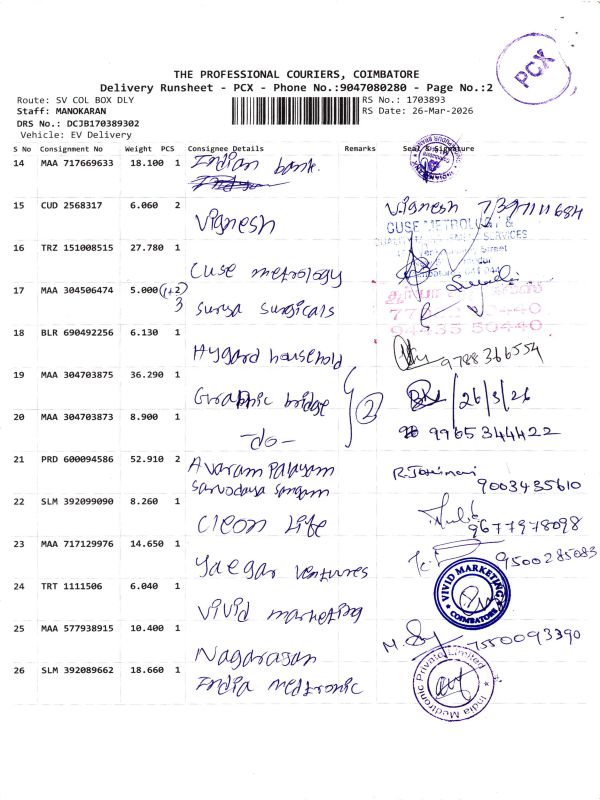 PCX
THE PROFESSIONAL COURIERS, COIMBATORE
Delivery Runsheet - PCX - Phone No.:9047080280 - Page No.:2
Route: SV COL BOX DLY
RS No.: 1703893
Staff: MANOKARAN
RS Date: 26-Mar-2026
DRS No.: DCJB170389302
Vehicle: EV Delivery
S No Consignment No Weight PCS Consignee Details Remarks Seal & Signature
14 MAA 717669633 18.100 1 Indian bank.
15 CUD 2568317 6.060 2 Vignesh Vignesh
16 TRZ 151008515 27.780 1 Cuse metrology
CUSE METROLOGY &
SERVICES
Street
17 MAA 304506474 5.000 (1+2) 3 Surya Surgicals
18 BLR 690492256 6.130 1 Hygard household 9788366554
19 MAA 304703875 36.290 1 Graphic bridge 26/3/26
2
20 MAA 304703873 8.900 1 -do- 9965344422
21 PRD 600094586 52.910 2 Avaram Palayam
Sarvodaya Sangam
9003435610
22 SLM 392099090 8.260 1 Cleon Life 9677978098
23 MAA 717129976 14.650 1 Yaegar ventures 9500285083
24 TRT 1111506 6.040 1 Vivid marketing
VIVID MARKETING
COIMBATORE
25 MAA 577938915 10.400 1 Nagarasan 7550093390
26 SLM 392089662 18.660 1 India medtronic
India Medtronic Private Limited